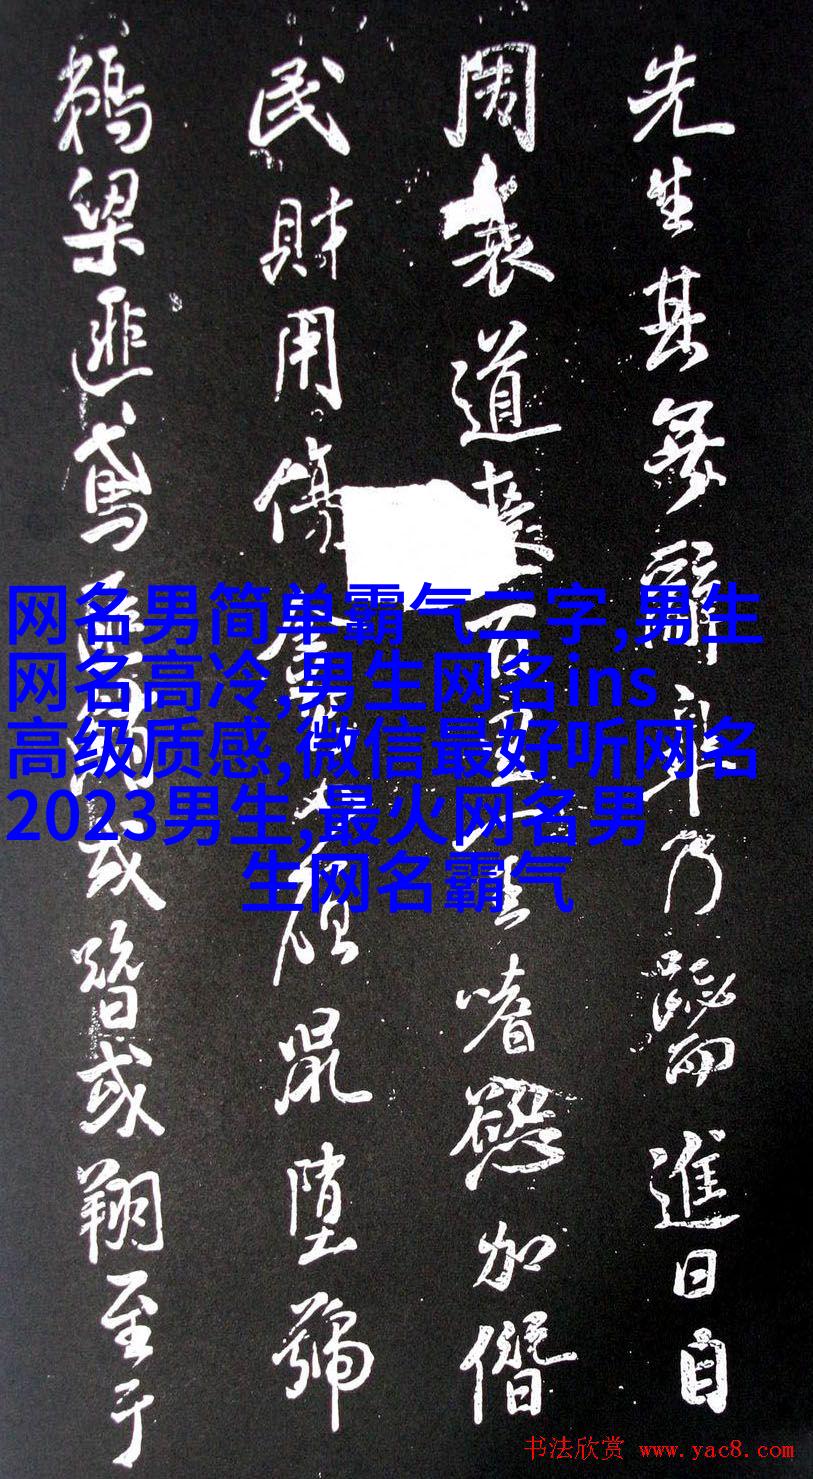 先生其無辭年乃躋而進曰自
周衰道喪百王
嗜慾加僭
民財用傷
鼠堕號
鵜梁匪鳶
或簪或翔至于
网名男简单霸气二字,男生
网名高冷,男生网名ins
高级质感,微信最好听网名
2023男生,最火网名男
生网名霸气
书法欣赏 www.yac8.com